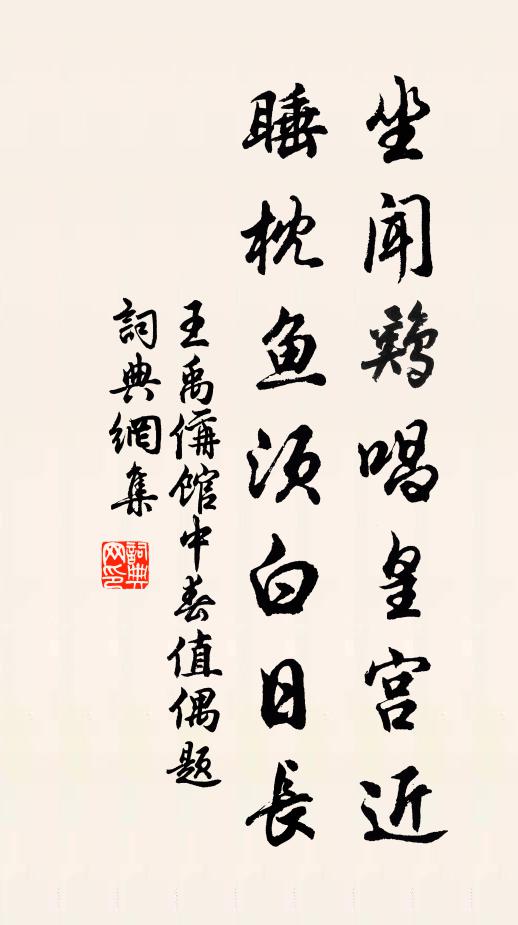 坐闻鸡唱皇宫近
睡枕鱼须白日長
王禹偁館中春值偶题
詞典網集
詞典网印